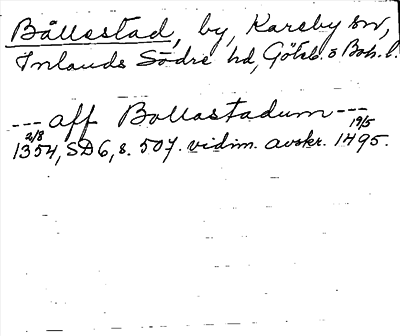 Bållestad, by, Kareby sn,
Inlands Södre hd, Göteb. o Boh. l.
--- aff Bollastadum ---
2/8 19/5
1354, SD6, s. 507. vidim. avskr. 1495.